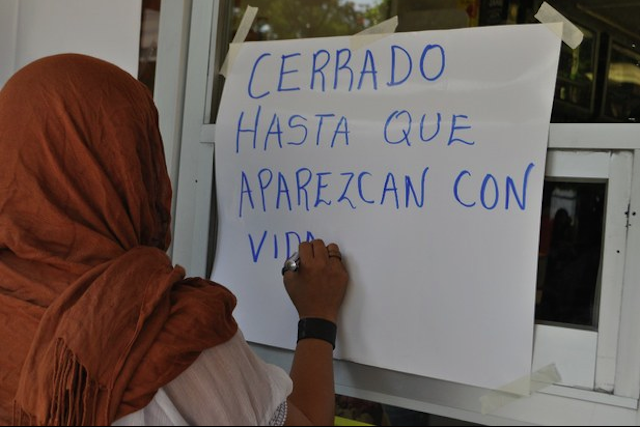 CERRADO
HASTA QUE
APAREZCAN CON
VIDA